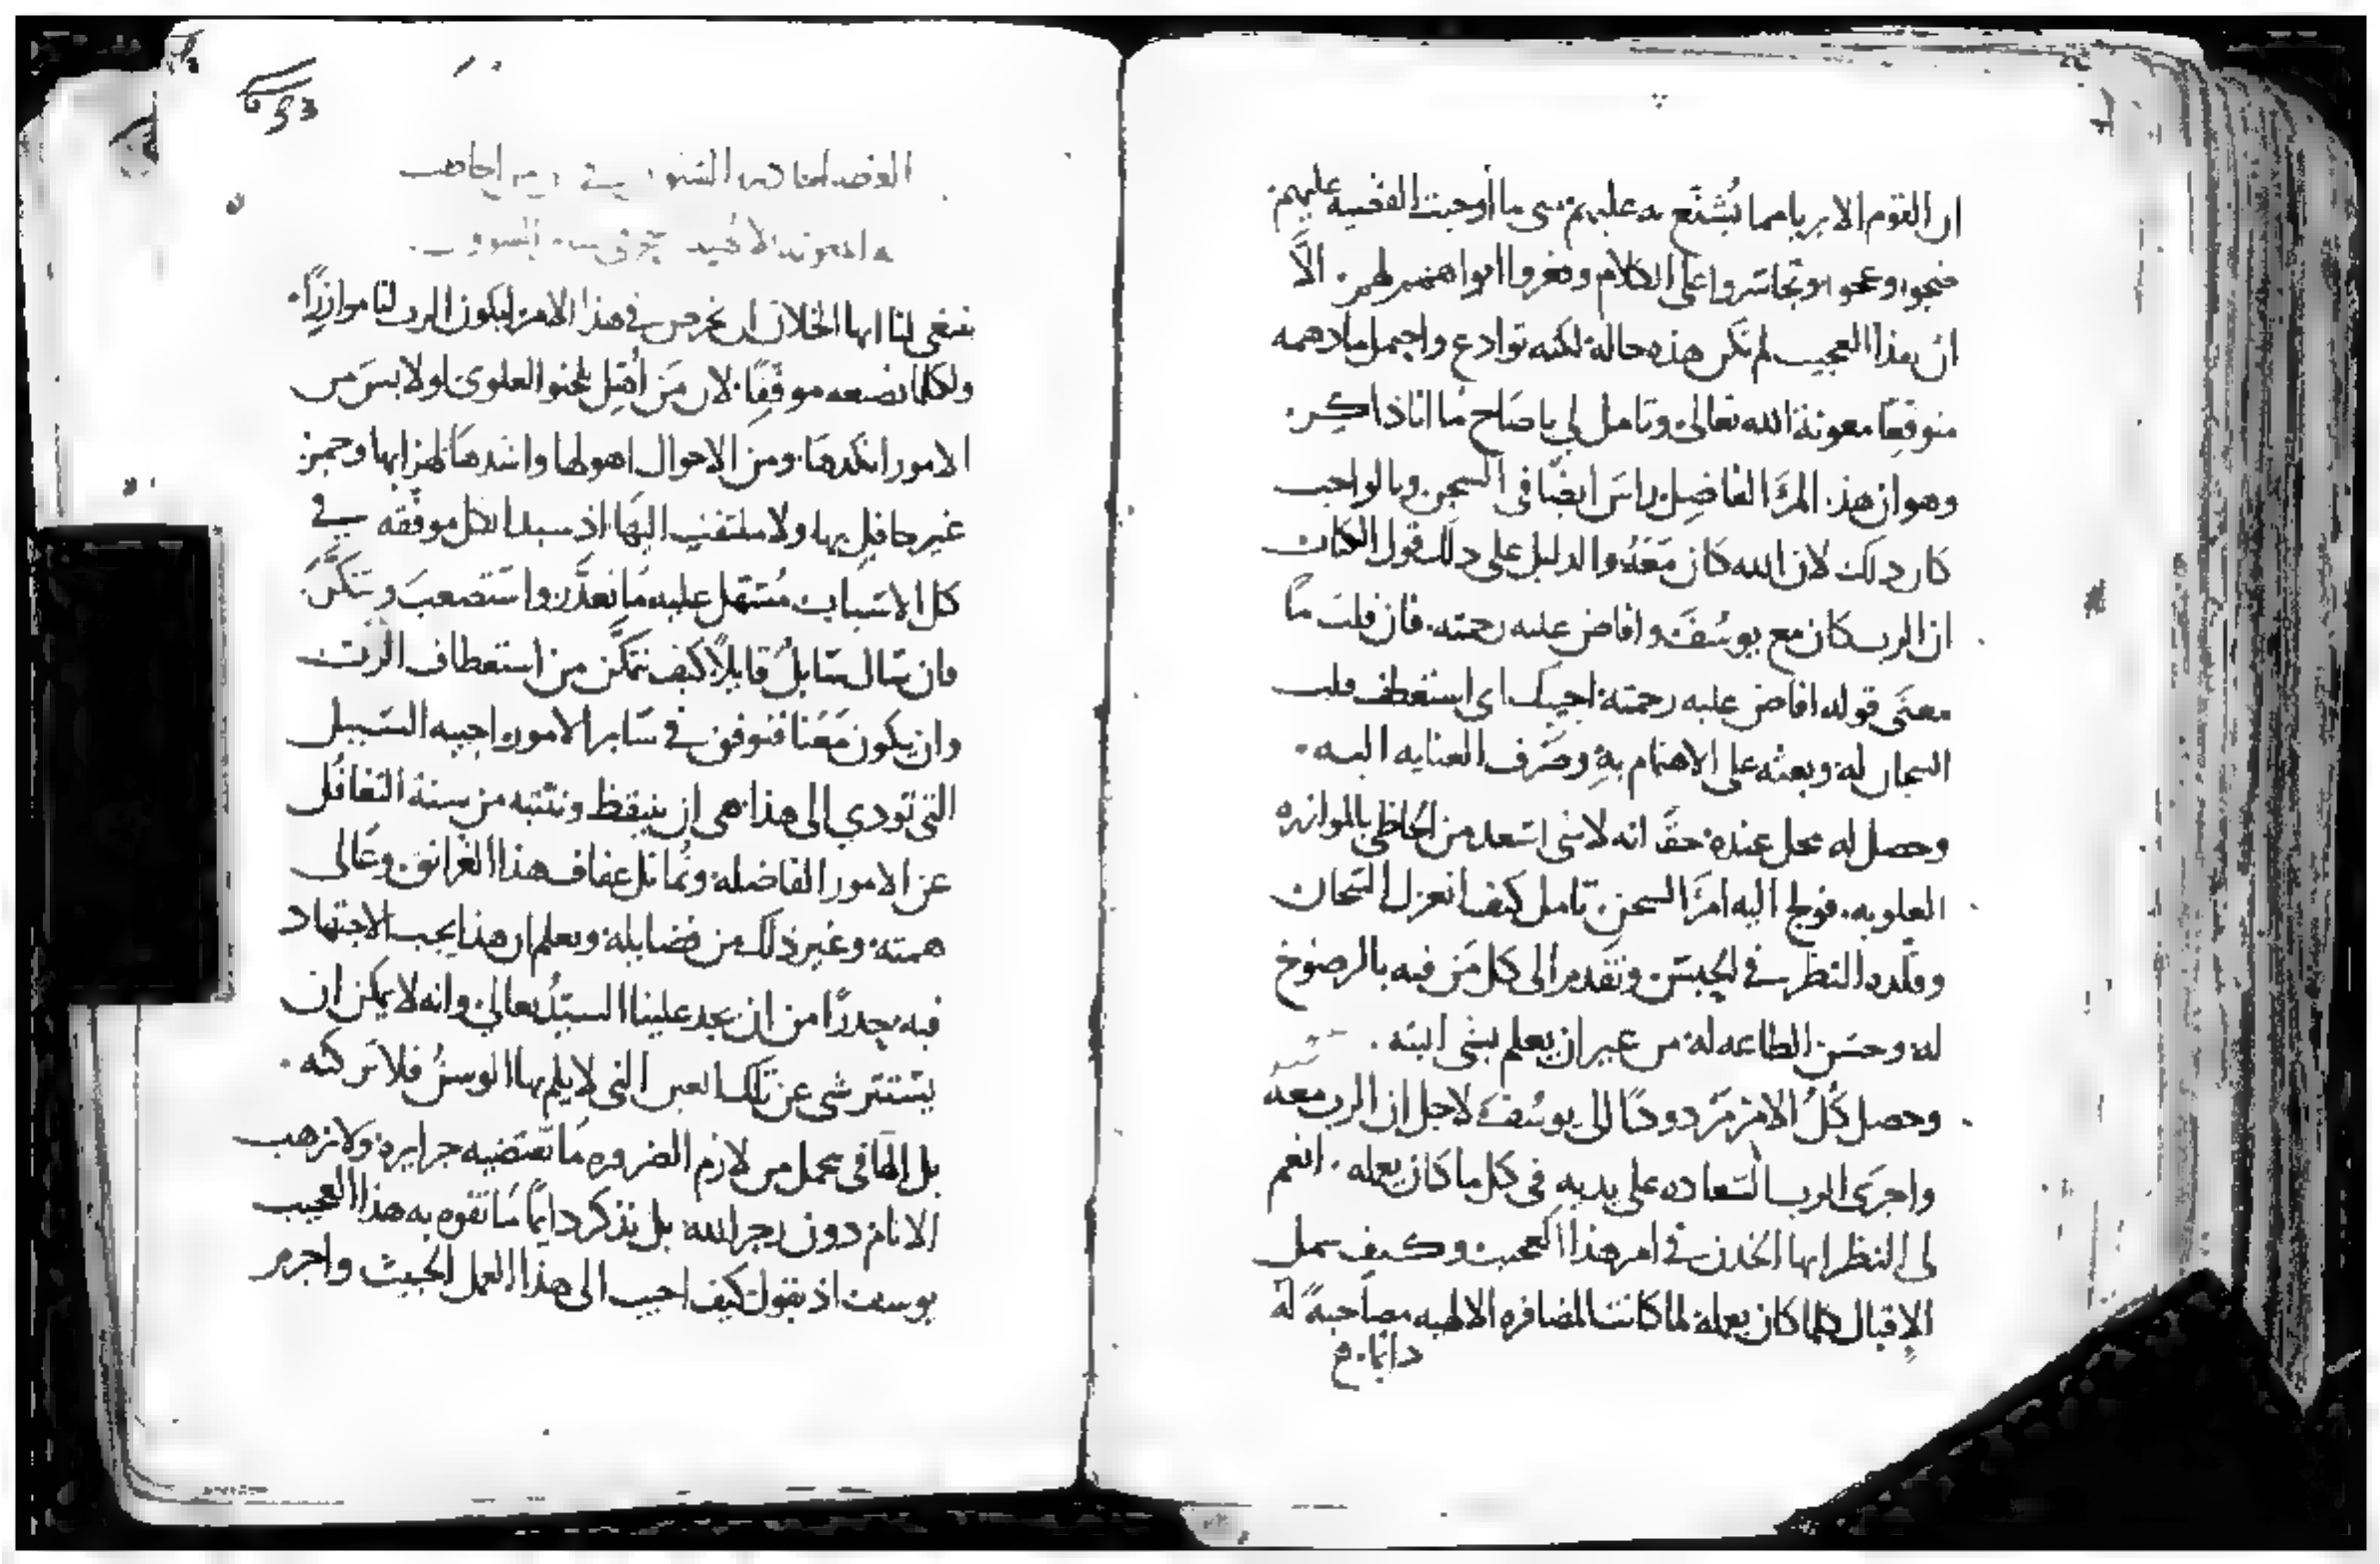 ان القوم الابريا مما يُشنَّع به عليهم متى ما أوجبت القضيه عليهم
ضجوا وعجوا وتجاسروا على الكلام وفغروا افواههم . الَّا
ان هذا العجيب لم تكن هذه حاله لكنه توادع واحتمل ما دهمه
متوقعًا معونة الله تعالى وتامل لي ياصَاح مَا انا ذاكر.
وهو ان هذا المرَ الفاضِل راسَ ايضًا في السجن وبالواجب
كان دلك لان الله كان مَعَهُ والدليل على دلك قول الكتاب
ان الرب كان مع يوسُفَ وافاض عليه رحمته. فان قلتَ مَا
معنَى قوله افاض عليه رحمته اجيبك اي استعطف قلب
السجان له وبعثه على الاهتمام بهِ وصَرف العنايه اليه .
وحصل له محل عنده حقًا انه لاشي اسَعد من الحَاظي بالموازره
العلويه. فولج اليه امرَ السجن تامل كيف انعزل السَّجان
وقلّده النظر في الحبسَ وتقدم الى كل مَن فيه بالرضوخ
له وحسَن الطاعه له من غير ان يعلم بشي البته .
وحصل كُلُ الامر مَردودًا الى يوسُفَ لاجل ان الرب معه
واجرَى الرب السَّعاده على يديه في كل ما كان يعمله . انعم
لي النظر ايها الخدن في امر هذا العجيب وكيف سهل
الاقبال كلما كان يعمله لما كانت المضافره الالهيه مصَاحبهً لهَ
دايمًا.
ينبغي لنا ايها الخلان ان نحرص في هذا الامر ليكون الرب لنا موازرًا.
ولكلما نصنعه موفّقِا. لان مَن أُهّل للحنو العلوي لو لابسَ من
الامور انكدهَا ومن الاحوال اهولها واشدهَا لهزابها وحمز
غير حافلِ بها ولا ملتفتِ اليهَا اذ سيد الكل موفّقه في
كل الاسَباب مُسَتهل عليه مَا تعذَّر واستَصعبَ وتنكَّرَ.
فان سَال سَايلُ قايلاً كيف نتمكَّن من استعطاف الرب
وان يكون مَعَنا فنوفق في سَاير الامور اجيبه السَبيل
التي تودي الى هذا هي ان نتيقظ وننتبه من سنة التغافُل
عن الامور الفاضله ونُماثل عفاف هذا الغرانق وعَالى
همته وغير ذلك من فضايله ونعلم ان هذا يجب الاجتهاد
فيه حِدرًا من ان يجد علينا السيّدُ تعالى وانه لا يمكن ان
يسَتتر شي عن تلك العين التي لا يلم بها الوسنُ فلا نتركنه .
بل القَاقي محمل من لازم الضروره مَا تقتضيه جرايره ولا نرهب
الانام دون رجر الله بل نذكر دايمًا مَا تفوه به هذا العجيب
يوسف اذ يقول كيف اجيب الى هذا العمل الخبيث واجرم